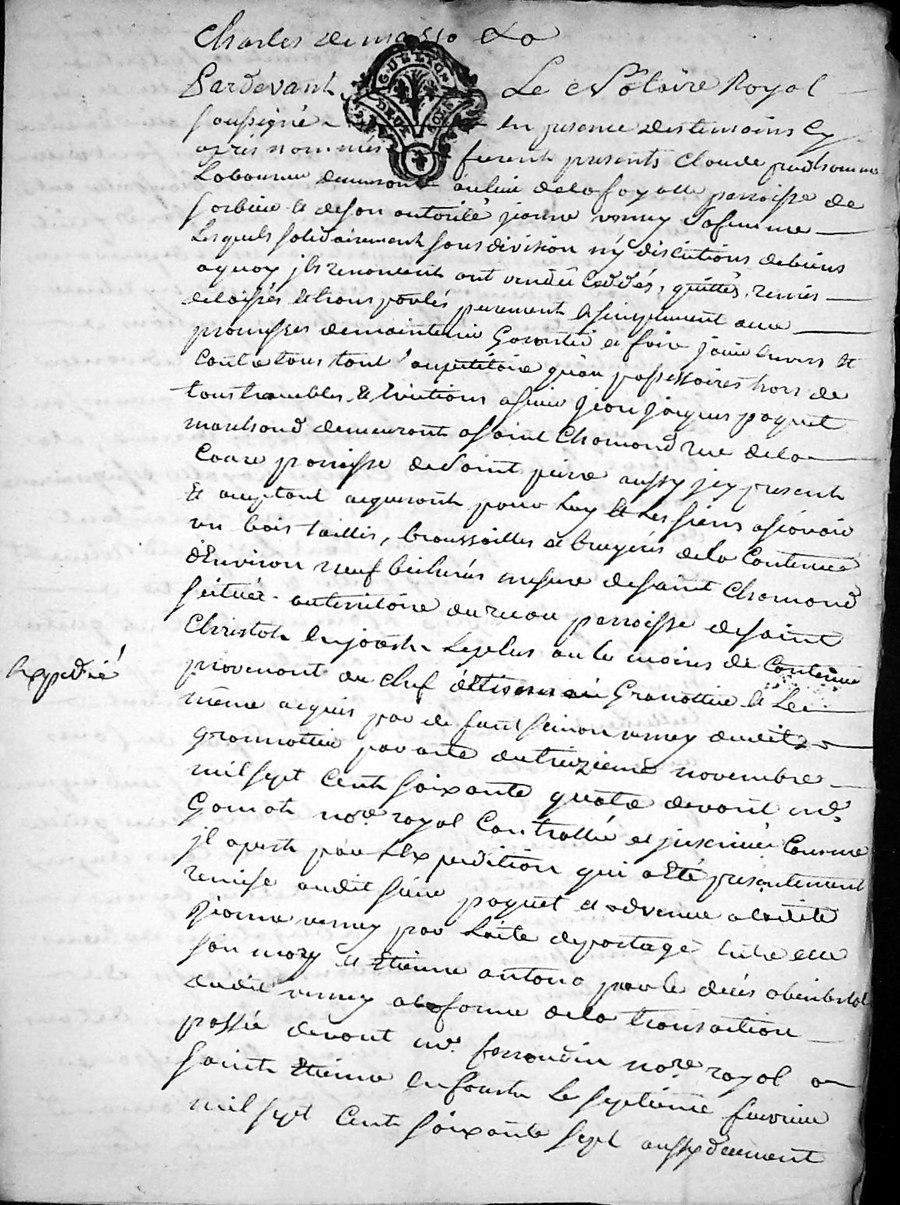 Charles
Pardevant Le Notaire Royal
soussigné En presence des temoins Cy
apres nommes furent presents Claude prudhomme
Laboureur demeurant au lieu de la fayolle parroisse de
Sorbier & de son autorité jeanne verney sa femme
Lesquels solidairement sans division ny discutions de biens
a quoy jls renoncent ont vendu Ceddés, quittés, remis
delaissés & transportés purement & simplement avec
promesses de maintenir Garantir et faire jouir Envers &
Contre tous tant au petitoire qu'au possessoires hors de
tous troubles & Evictions a sieur jean jacques paquet
marchand demeurant a saint Chamond rue de la
parroisse de Saint pierre aussy jcy present
& acceptant acquerant pour Luy & Les siens a scavoir
un bois taillis, broussailles et bruyeres de la Contenue
d'Environ neuf bicherés mesure de saint Chamond
scitué au territoire du parroisse de saint
Christoh En jarest Le plus ou le moins de Contenue
provenant du chef Granottier & Le
meme acquis par de funt simon verney dudit
granottier par acte du treizieme novembre
mil sept Cent soixante quatre devant me.
Gamot nore. royal Controllé et jnsinué Comme
jl apert par L'Expedition qui a Eté presentement
remise audit sieur paquet et advenue a laditte
jeanne verney par L'acte de partage Entre elle
son mary & Etienne antoine par le décés abintestat
dudit verney a la forme de la transaction
passée devant me. ferrandin nore. royal a
Saint Etienne En fourest Le septiéme fevrier
mil sept Cent soixante sept aussy duement
Expedié
GUELTON